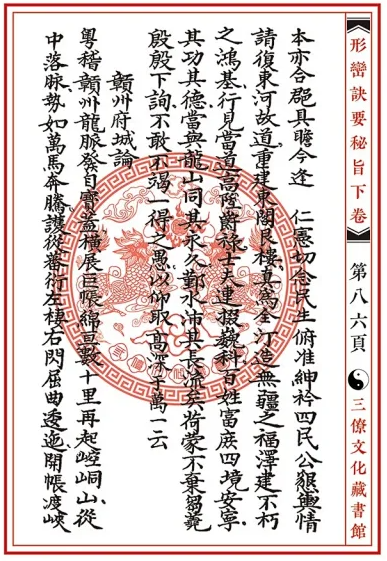 形巒訣要秘旨下卷
第八六頁
三僚文化藏書館
本亦合郡具瞻今逢　仁憲切念民生俯准紳衿四民公懇輿情
請復東河故道重建東閣艮樓真爲全汀造無疆之福澤建不朽
之鴻基行見當道高陞爵祿士夫連掇巍科百姓富庶四境安寧
其功其德當與龍山同其永久鄞水沛其長流矣荷蒙不棄芻蕘
殷殷下詢不敢不竭一得之愚以仰取高深于萬一云
贛州府城論
粵稽贛州龍脉發自寶蓋橫展巨帳綿亘數十里再起崆峒山從
中落脉勢如萬馬奔騰護從蕃衍左棲右閃屈曲逶迤開帳渡峽